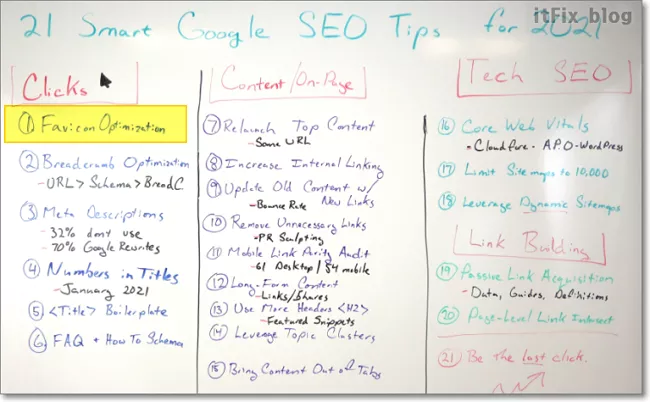 21 Smart Google SEO Tips for 2021
itFix blog
Clicks
1 Favicon Optimization
2 Breadcrumb Optimization
- URL > Schema > BreadC.
3 Meta Descriptions
- 32% dont use
- 70% Google Rewrites
4 Numbers in Titles
- January 2021
5 <Title> Boilerplate
6 FAQ + How To Schema
Content/On-Page
7 Relaunch Top Content
- Same URL
8 Increase Internal Linking
9 Update Old Content w/
New Links
- Bounce Rate
10 Remove Unnecessary Links
- PR Sculpting
11 Mobile Link Parity Audit
- 61 Desktop / 54 mobile
12 Long-Form Content
- Links/Shares
13 Use More Headers <H2>
- Featured Snippets
14 Leverage Topic Clusters
15 Bring Content Out of Tabs
Tech SEO
16 Core Web Vitals
- Cloudflare - APO - WordPress
17 Limit Sitemaps to 10,000
18 Leverage Dynamic Sitemaps
Link Building
19 Passive Link Acquisition
- Data, Guides, Definitions
20 Page-Level Link Intersect
21 Be the last click.